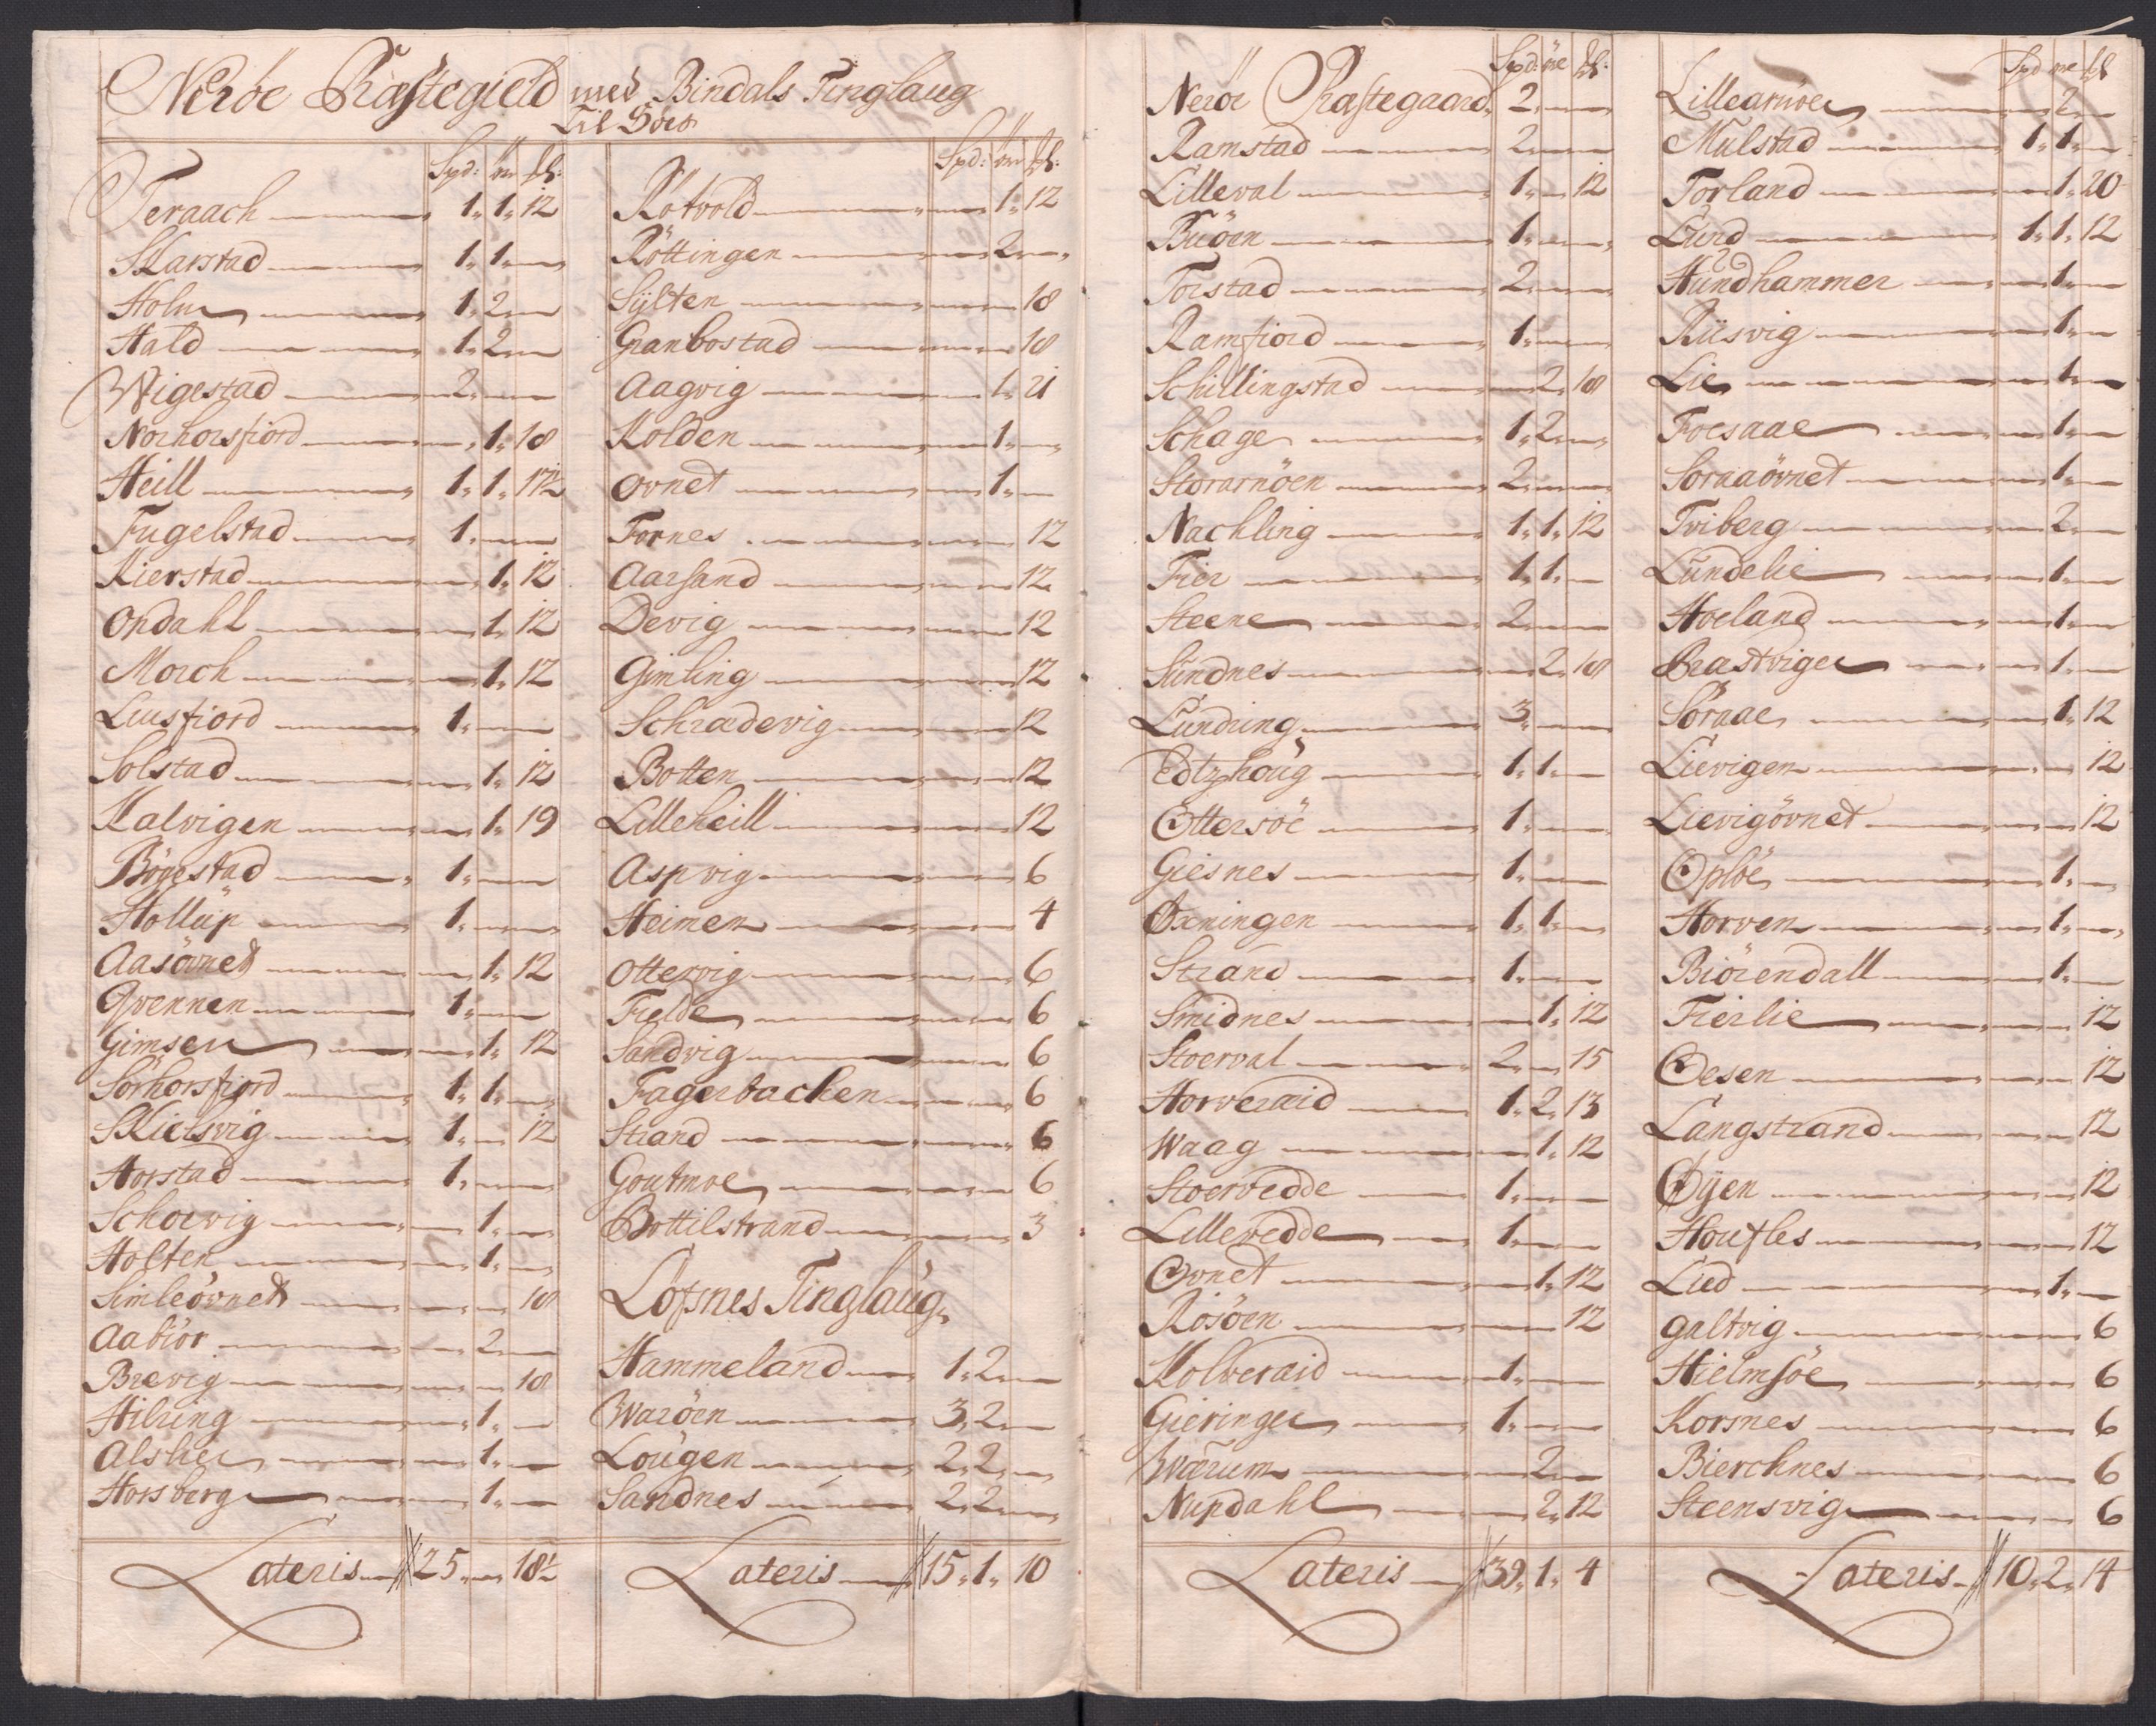 Neröe Præstegield med Bindals Tinglaug
Til Söes
Spd: ort ß:
Teraach 1" 1" 12
Skarstad 1" 1"
Holm 1" 2"
Hald 1" 2"
Wigestad 2"
Norhorsfiord 1" 18
Heill 1" 1" 17½
Fugelstad 1"
Kierstad 1" 12
Opdahl 1" 12
Morch 1" 12
Liusfiord 1"
Solstad 1" 12
Kalvigen 1" 19
Bögestad 1"
Hollup 1"
Aasövned 1" 12
Qvennen 1"
Gimsen 1" 12
Sörhorsfiord 1" 1"
Skielsvig 1" 12
Horstad 1"
Schoevig 1"
Holten 1"
Simleövned 18
Aabiör 2
Brevig 18
Hilring 1"
Alslien 1"
Horsberg 1"
Lateris 25 " 18½
Spd: ort ß:
Kötvold 1" 12
Röttingen 2"
Sÿlten 18
Granbostad 18
Aagvig 1" 21
Kolden 1"
Ovnet 1"
Fornes 12
Aarsand 12
Devig 12
Gimling 12
Schradevig 12
Botten 12
Lilleheill 12
Aspvig 6
Heimen 4
Ottervig 6
Fielde 6
Sandvig 6
Fagerbachen 6
Strand 6
Goutmoe 6
Bottilstrand 3
Löfsnes Tinglaug
Hammeland 1" 2"
Waröen 3" 2"
Lougen 2" 2"
Sandnes 2" 2"
Lateris 15" 1" 10
Spd: ort ß:
Neröe Præstegaard 2"
Ramstad 2"
Lilleval 1" 12
Buöen 1"
Torstad 2"
Ramfiord 1"
Schillingstad 2" 18
Schage 1" 2"
Storarnöen 2"
Nachling 1" 1" 12
Fier 1" 1"
Steene 2"
Sundnes 2" 18
Lundring 3"
Edtzhoug 1" 1"
Ottersöe 1"
Giesnes 1"
Öxningen 1" 1"
Strand 1"
Smidnes 1" 12
Stoerval 2" 15
Horveraid 1" 2" 13
Waag 1" 12
Stoervedde 1"
Lillevedde 1"
Ovnet 1" 12
Rösöen 12
Kolveraid 1"
Gieringen 1"
Wærum 2
Nupdahl 2" 12
Lateris 39" 1" 4
Spd ort ß
Lillearnöen 2
Mulstad 1" 1"
Torland 1" 20
Lund 1" 1" 12
Hundhammer 1"
Riisvig 1"
Lie 1"
Foesaae 1"
Soraaövnet 1"
Tviberg 2"
Lundelie 1"
Hoeland 1"
Brastvigen 1"
Söraae 1" 12
Lievigen 12
Lievigövnet 12
Oplöe 1"
Horven 1"
Biörendall 1"
Fierlie 12
Oesen 12
Langstrand 12
Öÿen 12
Houfles 12
Lied 1"
Galtvig 6
Hielmsöe 6
Korsnes 6
Bierchnes 6
Steensvig 6
Lateris 10" 2" 14